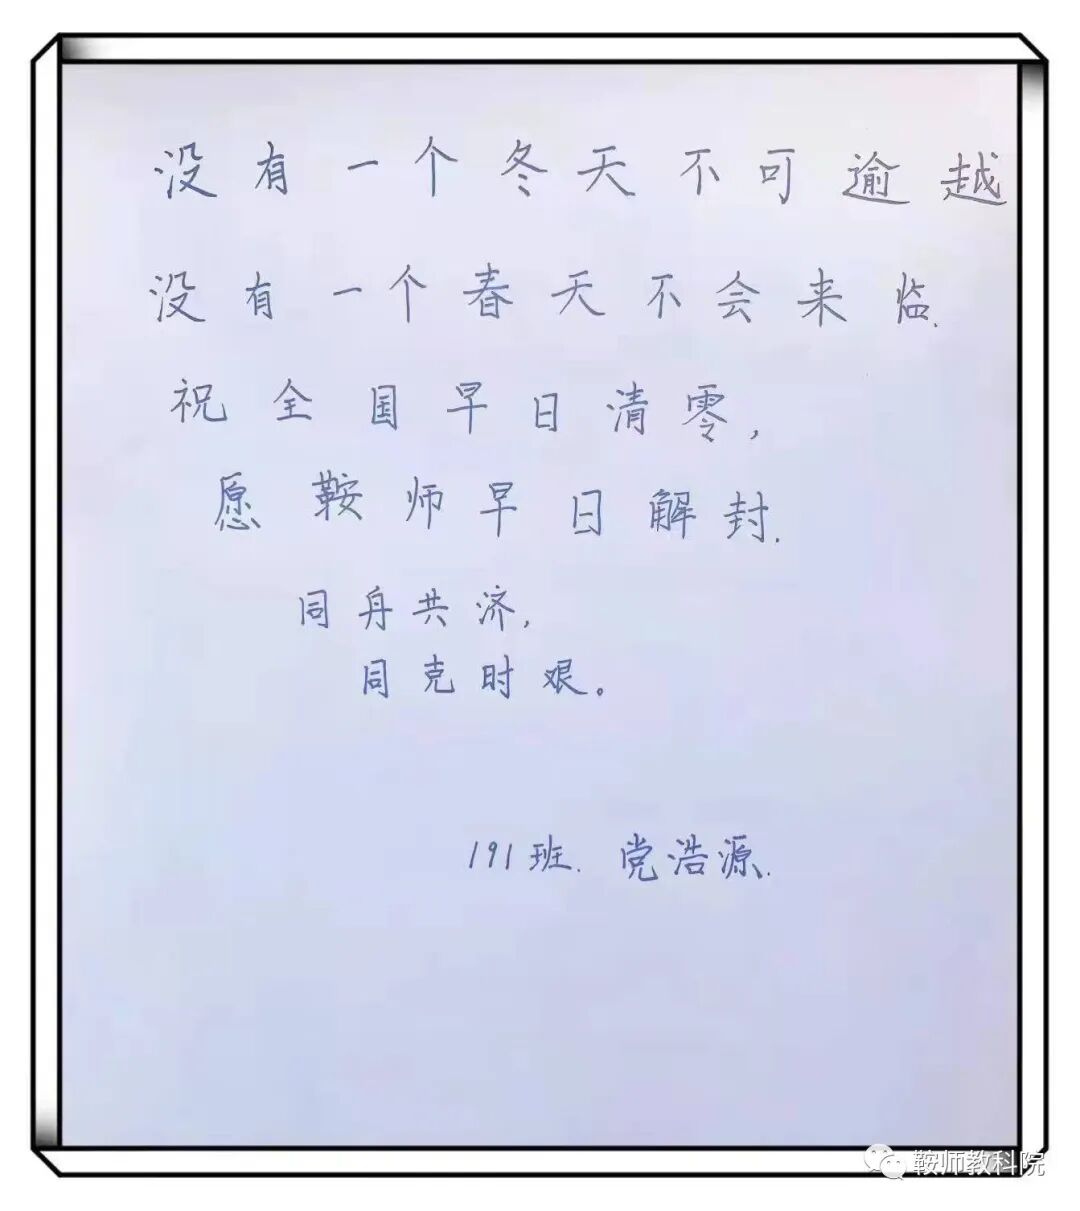 没有一个冬天不可逾越
没有一个春天不会来临.
祝全国早日清零,
愿鞍师早日解封.
同舟共济,
同克时艰。
191班. 党浩源.
鞍师教科院